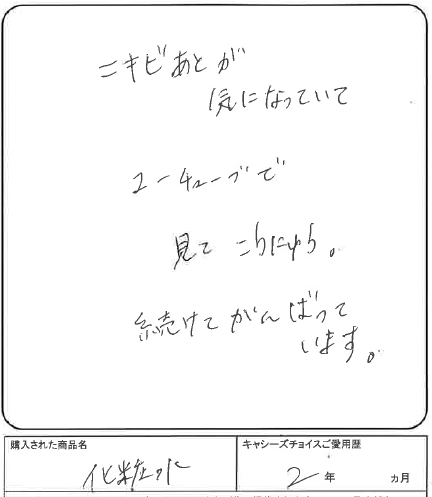 ニキビあとが
気になっていて
ユーチューブで
見て こうにゅう。
続けてがんばって
います。
購入された商品名
キャシーズチョイスご愛用歴
化粧水
2 年 カ月